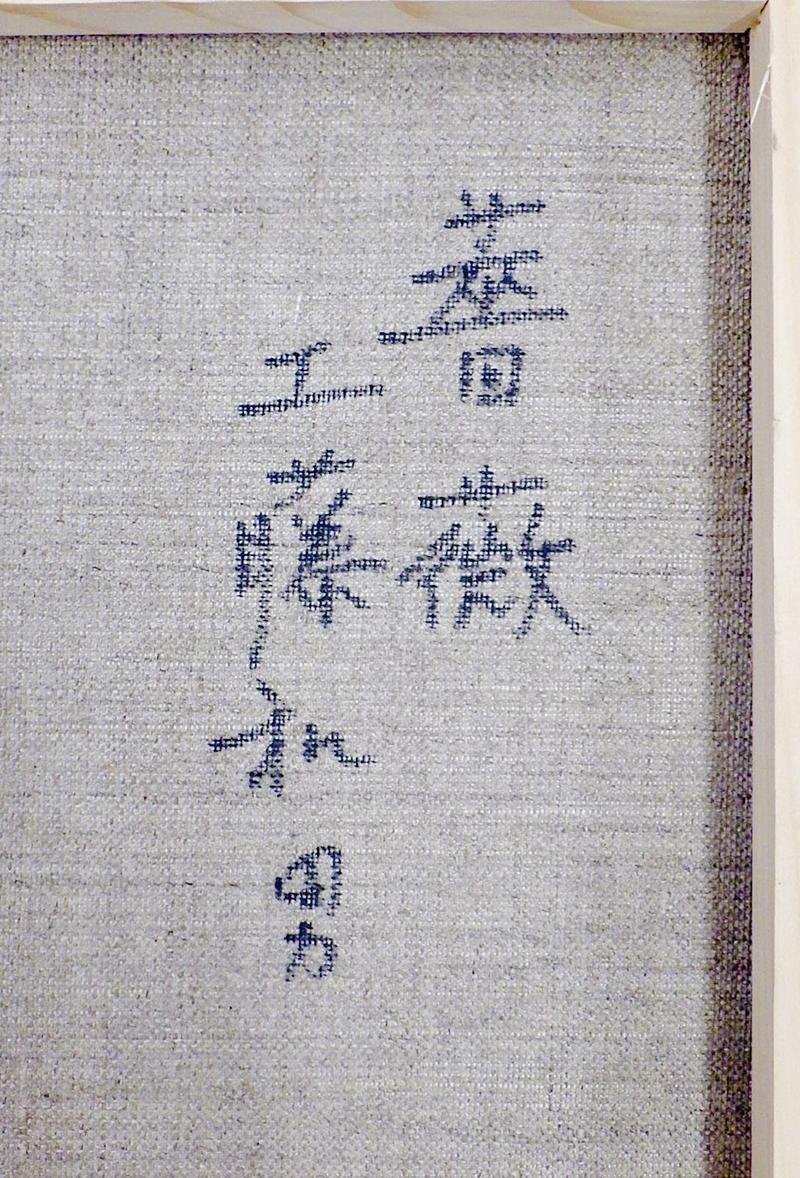 薔薇
工藤和男